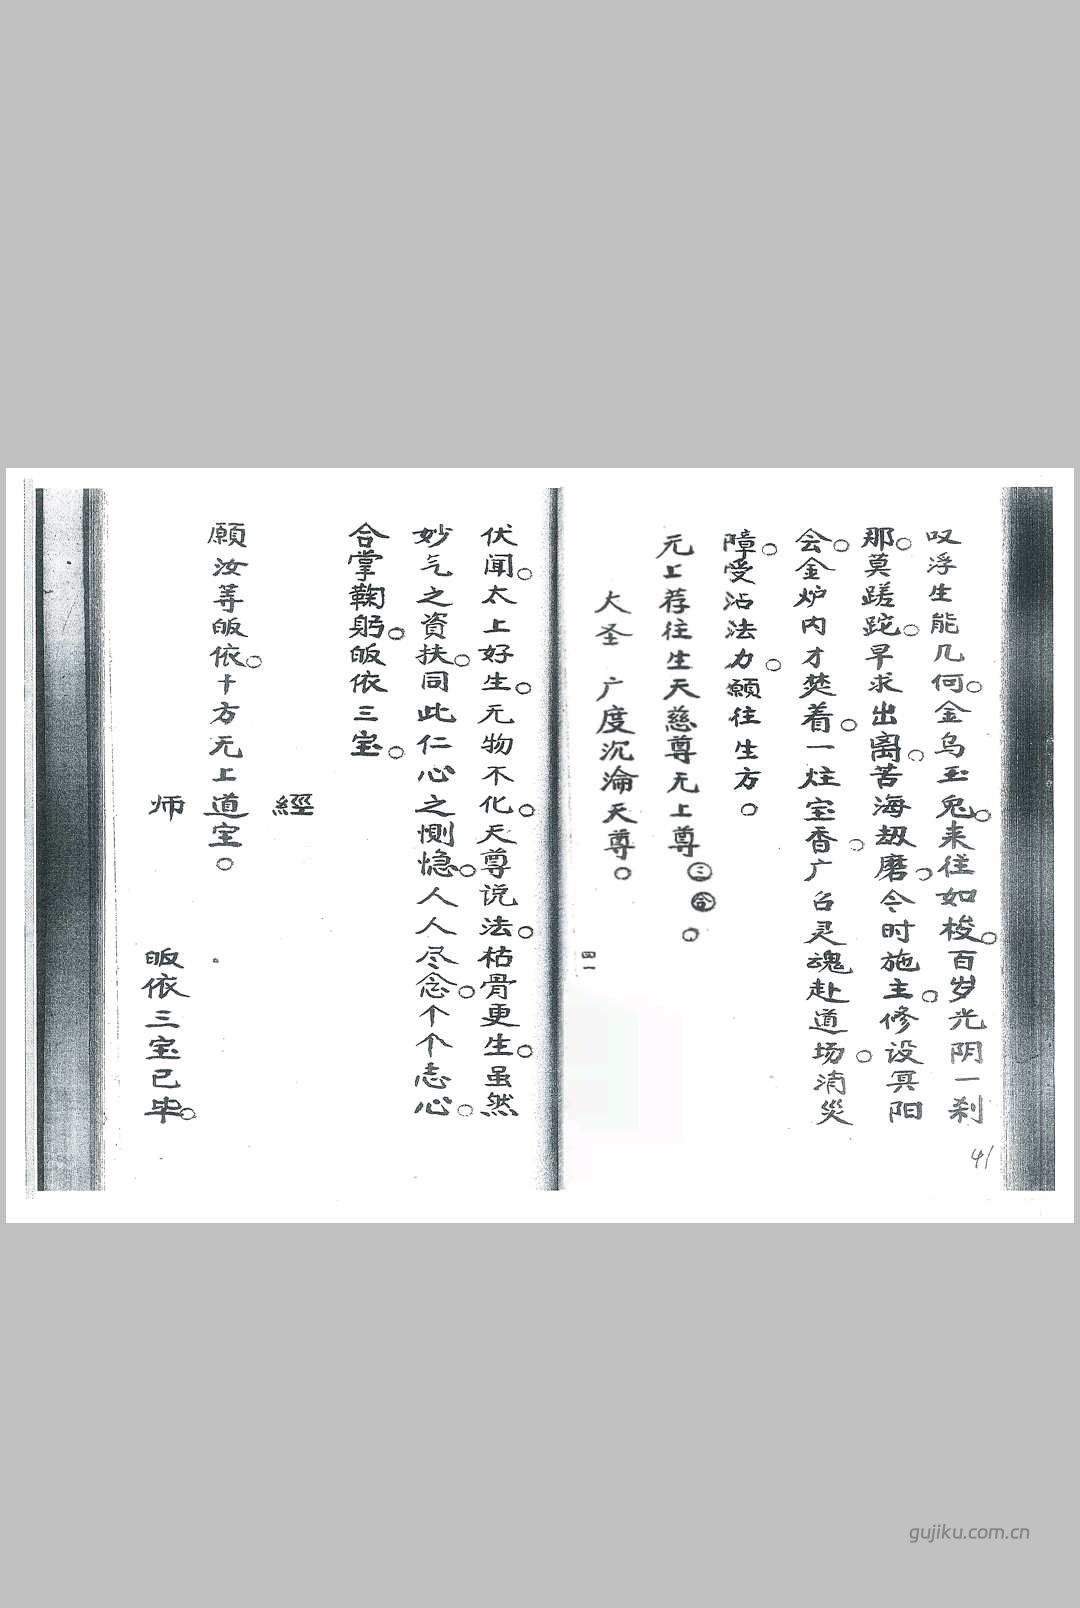 叹浮生能几何。金乌玉兔。来往如梭。百岁光阴一刹
那。莫蹉跎。早求出离。苦海劫磨。今时施主。修设冥阳
会。金炉内才焚着。一炷宝香。广召灵魂赴道场。消災
障。受沾法力。願往生方。
元上荐往生天慈尊无上尊㊂㊔。
大圣 广度沉淪天尊。
四一
41
伏闻。太上好生。无物不化。天尊说法。枯骨更生。虽然
妙气之資扶。同此仁心之恻隐。人人尽念。个个志心。
合掌鞠躬。皈依三宝。
經
願汝等皈依。十方无上道宝。
师 皈依三宝已毕。
gujiku.com.cn